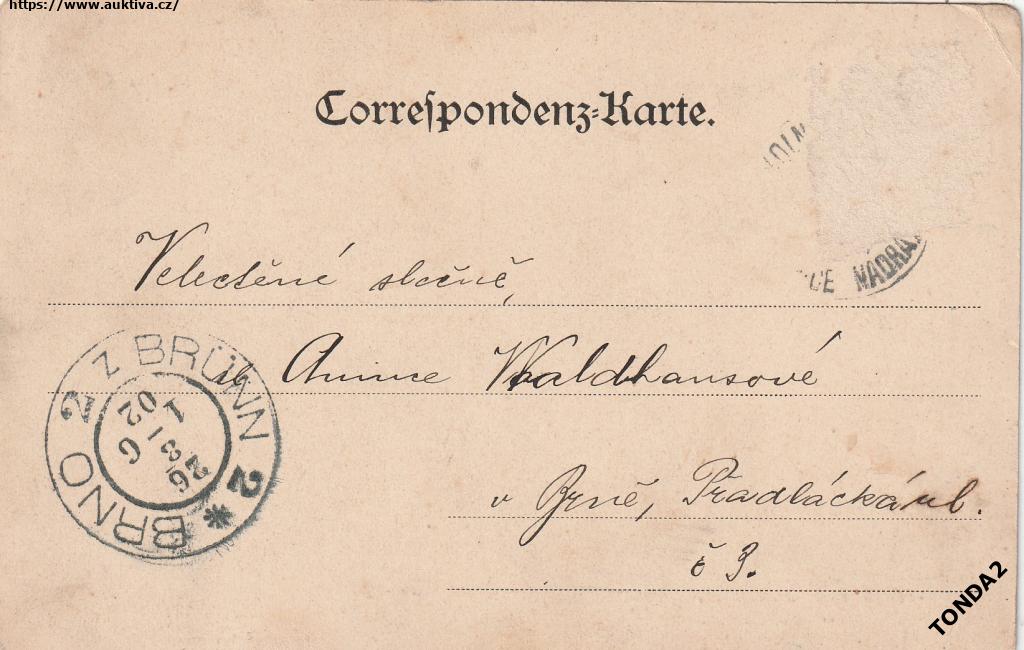 https://www.auktiva.cz/
Correſpondenz=Karte.
NÁDRA
Velectěné slečně,
sl. Anince Waldhansové
v Brně, Přadlácká ul.
č 3.
BRNO 2 Z BRÜNN 2 *
26 8 02
TONDA2